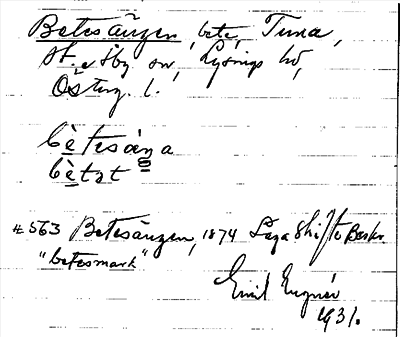 Betesängen, bete, Tuna,
St. o Åby sn, Lysings hd,
Österg. l.
bètesäŋa
bètət
#563 Betesängen, 1874 Laga Skifte Beskr.
"betesmark"
Emil Eugnér
1931.